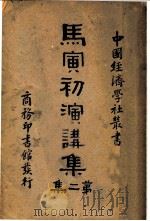 中國經濟學社叢書
馬寅初演講集
第二集
商務印書館發行